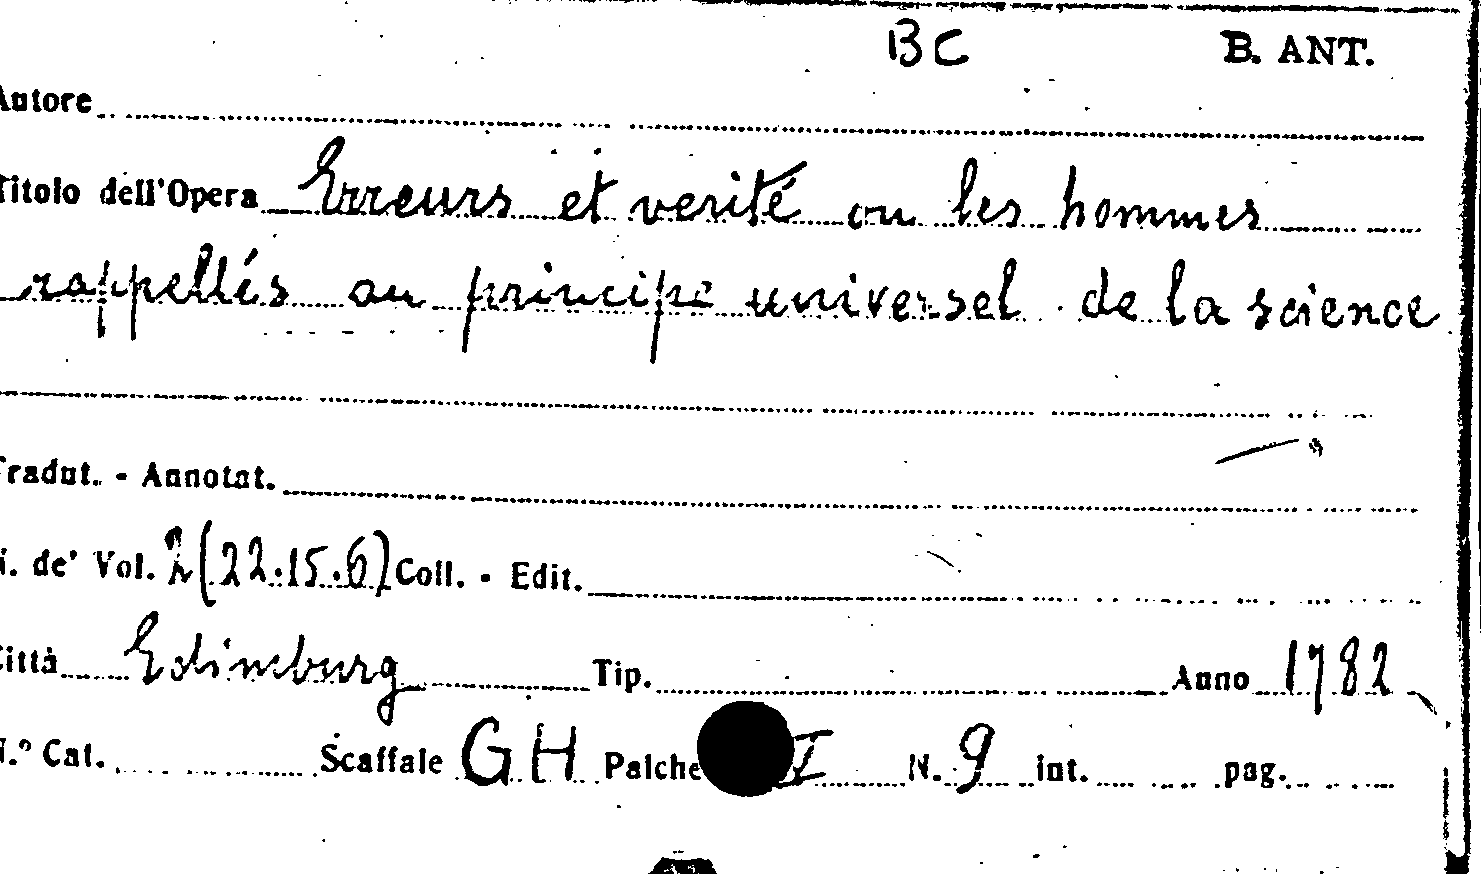 BC B. ANT.
Autore
Titolo dell'Opera Erreurs et verité ou les hommes
rappellés au principe universel de la science
Tradut. - Annotat.
N. de' Vol. 2 (22.15.6) Coll. - Edit.
Città Edimburg Tip. Anno 1782
N.º Cat. Scaffale GH Palche I N. 9 int. pag.